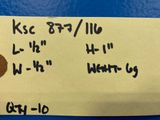 KSC 877/116
L-½" H-1"
W-½" WEIGHT-6g
QTY-10